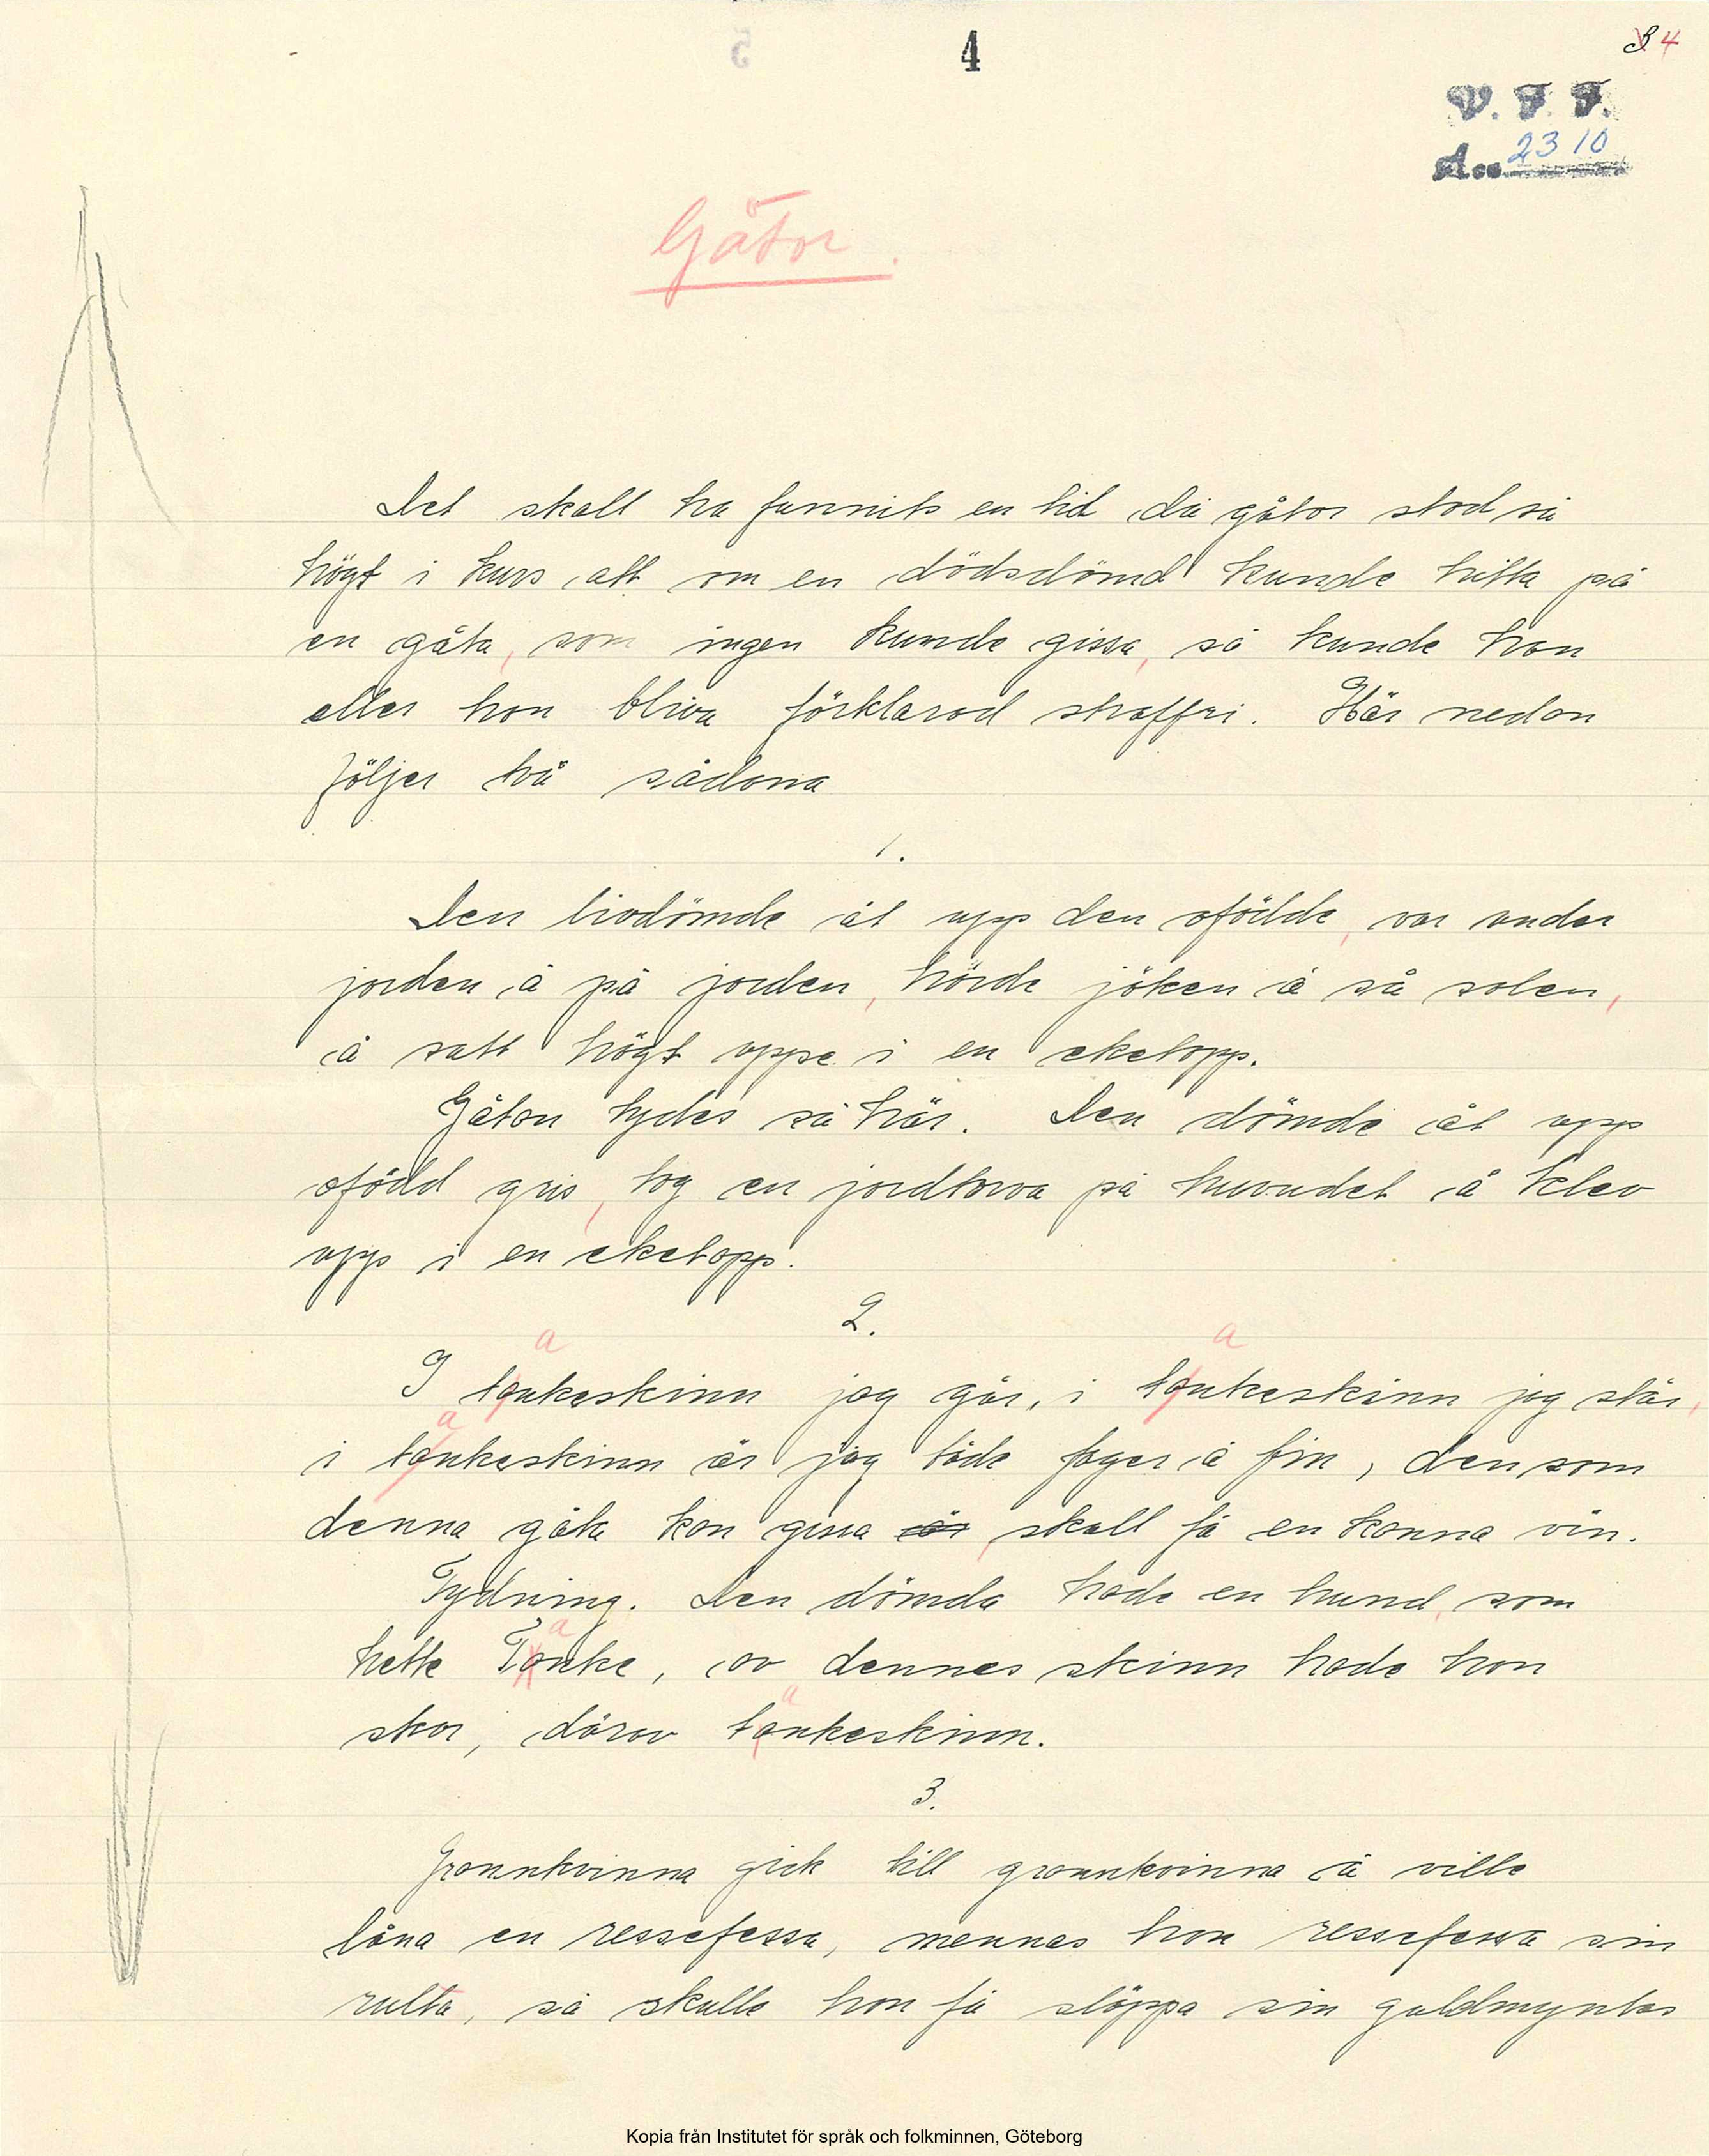 4
3 4
V. F. F.
Acc. 2310
Gåtor.
Det skall ha funnits en tid då gåtor stod så
högt i kurs att om en dödsdömd kunde hitta på
en gåta, som ingen kunde gissa, så kunde han
eller hon bliva förklarad straffri. Här nedan
följer två sådana
1.
Den livdömde åt upp den ofödde, var under
jorden å på jorden, hörde jöken å så solen,
å satt högt uppe i en eketopp.
Gåtan tydes så här. Den dömde åt upp
ofödd gris, tog en jordtorva på huvudet å klev
upp i en eketopp.
2.
I tankeskinn jag går, i tankeskinn jag står,
i tankeskinn är jag både fager å fin, den som
denna gåta kan gissa är, skall få en kanna vin.
Tydning. Den dömda hade en hund, som
hette Tanke, av dennes skinn hade hon
skor, därav tankeskinn.
3.
Grannkvinna gick till grannkvinna å ville
låna en ressefessa, mennas hon ressefessa sin
rulta, så skulle hon få släppa sin guldmyntes
Kopia från Institutet för språk och folkminnen, Göteborg